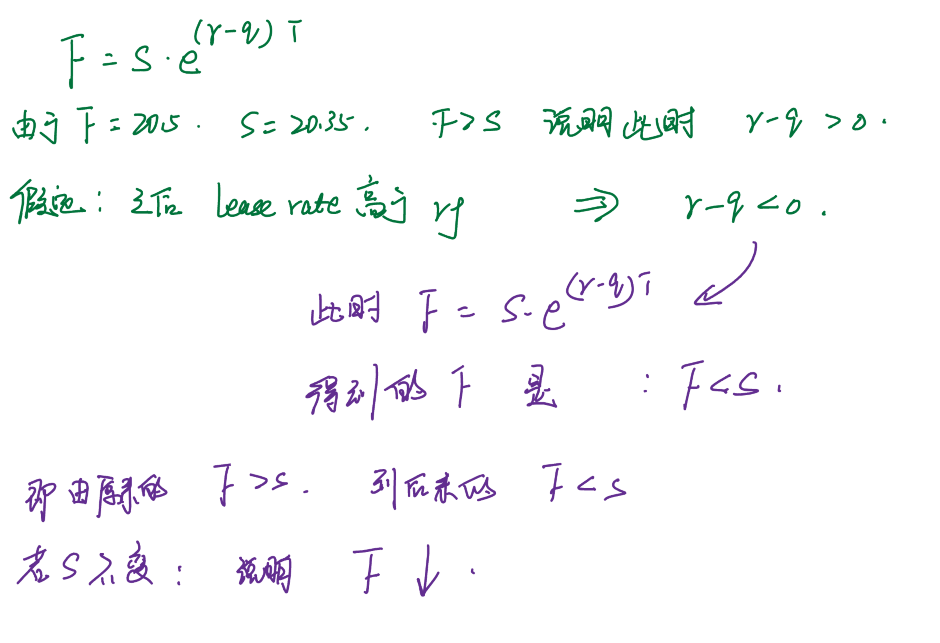 F = S · e^(r-q)T
由于 F = 20.5 . S = 20.35 . F > S 说明此时 r-q > 0 .
假定 : 之后 lease rate 高于 rf ⇒ r-q < 0 .
此时 F = S · e^(r-q)T
得到的 F 是 : F < S .
即由原来的 F > S . 到后来的 F < S
若 S 不变 : 说明 F ↓ .